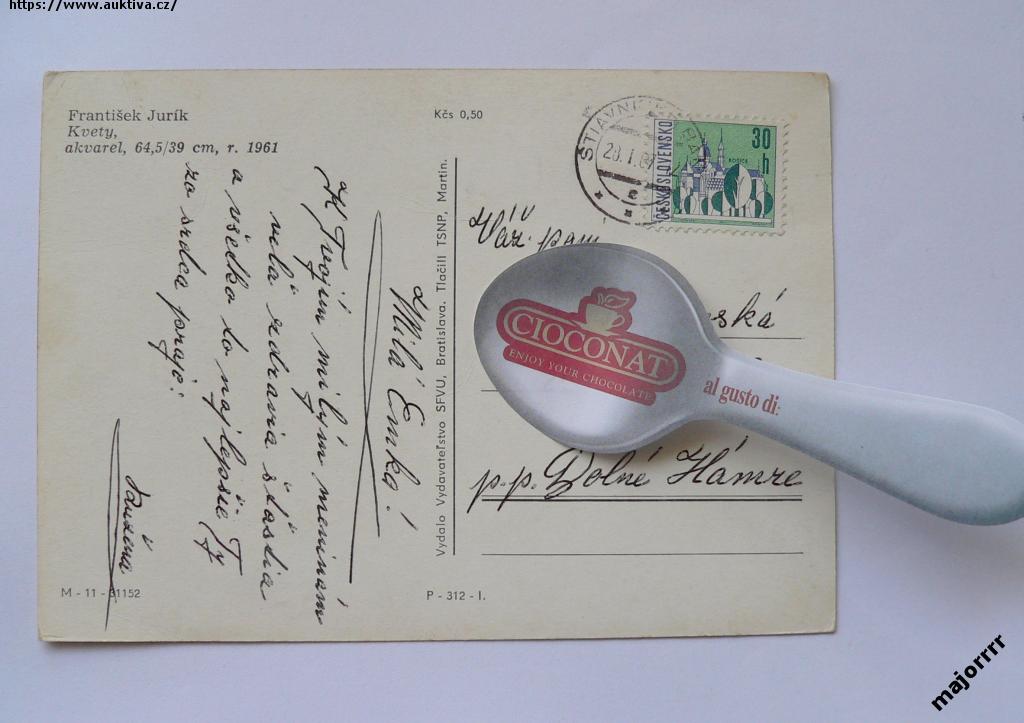 https://www.auktiva.cz/
František Jurík
Kvety,
akvarel, 64,5/39 cm, r. 1961
Kčs 0,50
Milá Emka!
K Tvojim milým meninám
veľa zdravia šťastia
a všetko to najlepšie Ty
zo srdca praje:
Božena
M - 11 - 31152
P - 312 - I.
Vydalo Vydavateľstvo SFVU, Bratislava. Tlačili TSNP, Martin.
28.I.67
ČESKOSLOVENSKO
30 h
KOŠICE
Váž. pani
eská
p.p. Dolné Hámre
CIOCONAT
ENJOY YOUR CHOCOLATE
al gusto di:
majorrrr